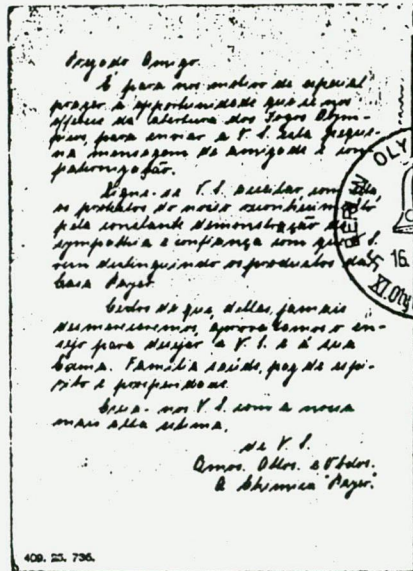 Prezado Amigo.
É para nos motivo de especial
prazer a opportunidade que se nos
offerece da abertura dos Jogos Olym-
picos, para enviar a V. S. esta peque-
na mensagem de amizade e
Digne-se V. S. acceitar com
os protestos do nosso reconhecimento
pela constante demonstração de
sympathia e confiança com que V. S.
vem distinguindo os productos da
Casa Bayer.
Certos de que, delles, jamais
desmereceremos, aproveitamos o en-
sejo para desejar a V. S. e á sua
Exma. Familia saúde, paz de espi-
rito e prosperidade.
Creia-nos V. S. com a nossa
mais alta estima,
de V. S.
Amos. Attos. e Obdos.
A Chimica "Bayer".
BERLIN OLY
16.
XI.
409. 23. 736.